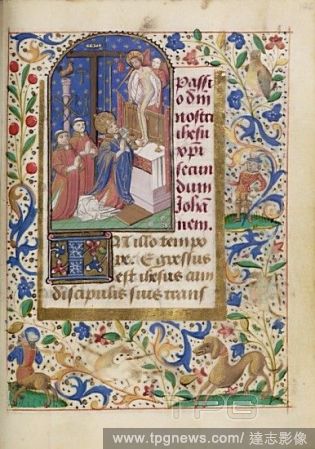 Passi
o dñi
nostri
ihesu
xp̄i
secun
dum
Joha
nem.
IN illo tempo
re. Egressus
est ihesus cum
discipulis suis trans
TPG
www.tpgnews.com/ 達志影像